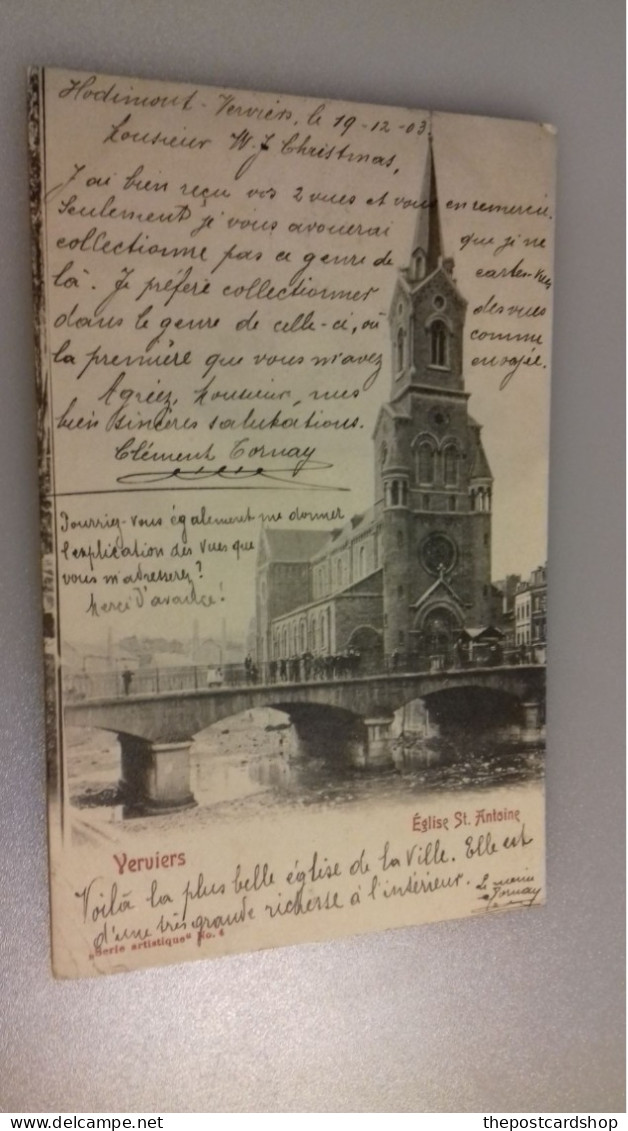 Hodimont-Verviers, le 19-12-03.
Monsieur W. J. Christmas,
J'ai bien reçu vos 2 vues et vous en remercie.
Seulement je vous avouerai que je ne
collectionne pas ce genre de cartes-vues
là. Je préfère collectionner des vues
dans le genre de celle-ci, où comme
la première que vous m'avez envoyée.
Agréez, Monsieur, mes
bien sincères salutations.
Clément Tornay
Pourriez-vous également me donner
l'explication des vues que
vous m'adresserez?
Merci d'avance!
Église St. Antoine
Verviers
Voilà la plus belle église de la Ville. Elle est
d'une très grande richesse à l'intérieur.
Le même
Tornay
„Serie artistique" No. 4
delcampe.net
thepostcardshop